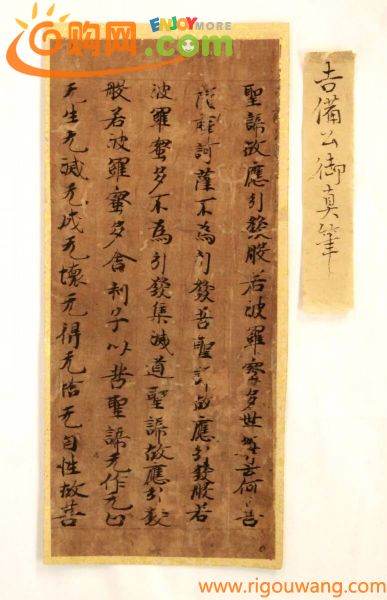 购网
ENJOY MORE
.com
吉備公御真筆
聖諦故應引發般若波羅蜜多世尊云何菩
薩摩訶薩不為引發苦聖諦故應引發般若
波羅蜜多不為引發集滅道聖諦故應引發
般若波羅蜜多舍利子以苦聖諦无作无止
无生无滅无成无壞无得无捨无自性故菩
www.rigouwang.com